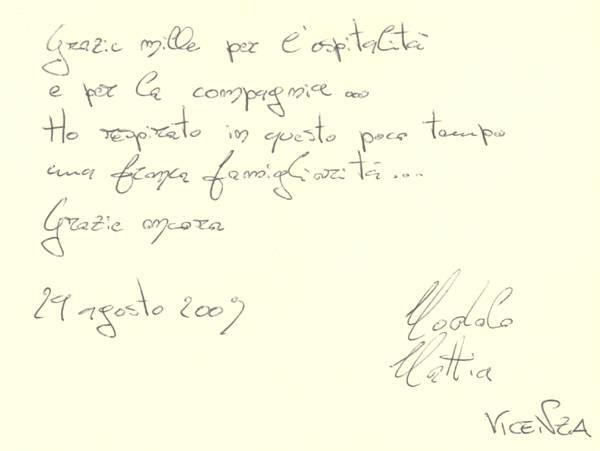 Grazie mille per l'ospitalità
e per la compagnia ...
Ho respirato in questo poco tempo
una franca famigliarità...
Grazie ancora
29 agosto 2009
Mattia
VICENZA